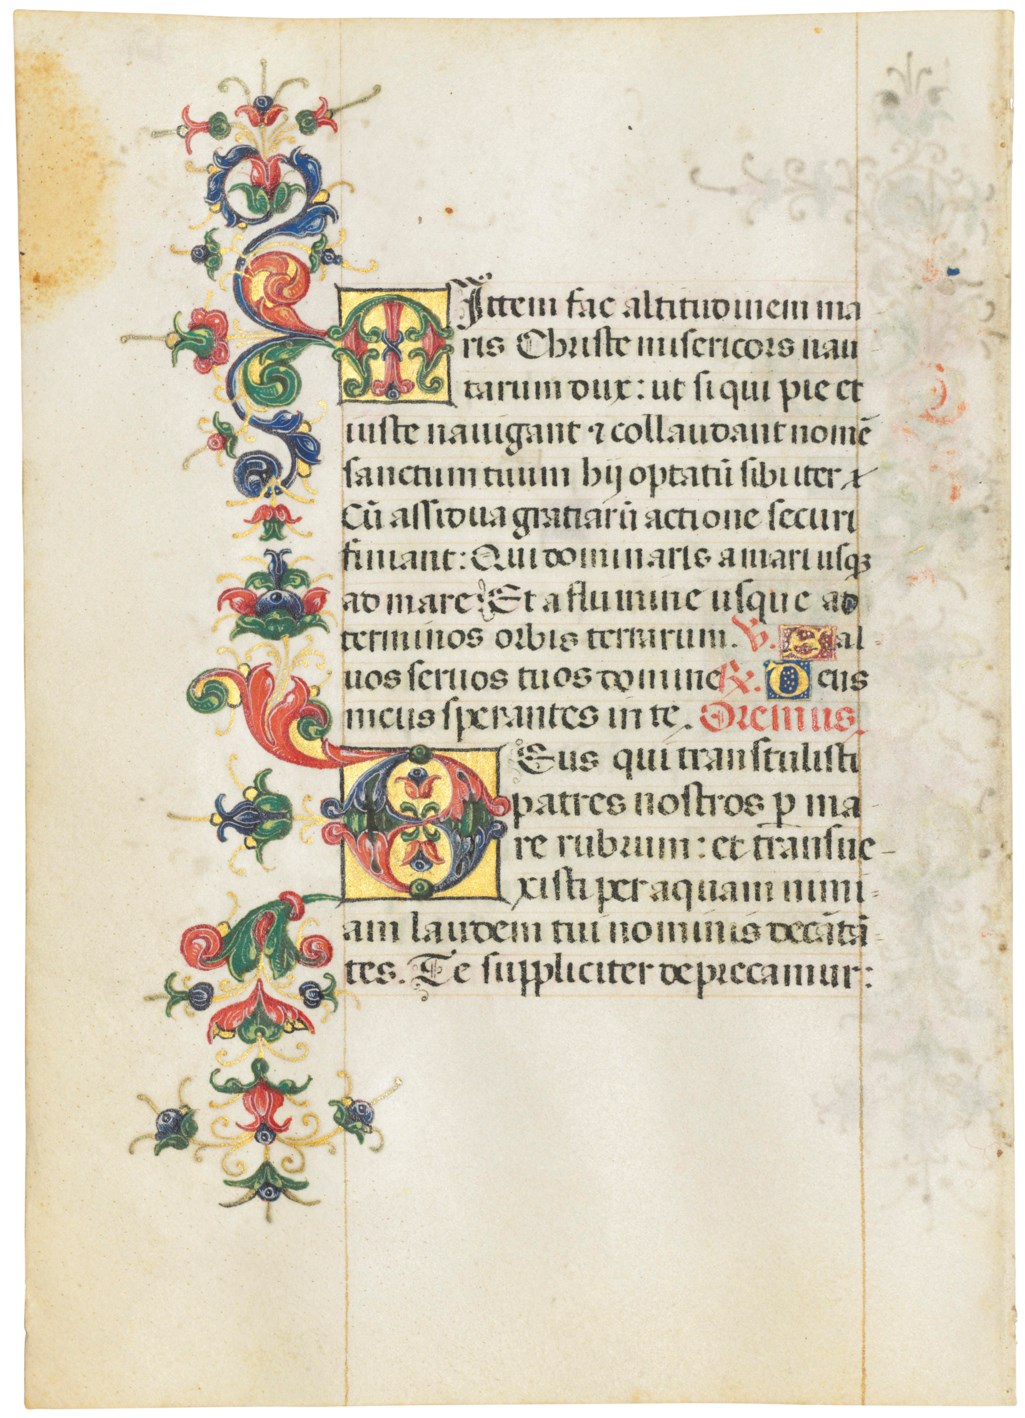 MIttem fac altitudinem ma
ris Christe misericors nau
tarum dux: ut si qui pie et
iuste nauigant ⁊ collaudant nomē
sanctum tuum hij optatū sibi iter
Cū assidua gratiarū actione securi
finiant: Qui dominaris a mari usqꝫ
ad mare: Et a flumine usque ad
terminos orbis terrarum. ℣. Sal
uos seruos tuos domine ℟. Deus
meus sperantes in te. Oremus.
DEus qui transtulisti
patres nostros ꝑ ma
re rubrum: et transue-
xisti per aquam nimi-
am laudem tui nominis decātā-
tes. Te suppliciter deprecamur: